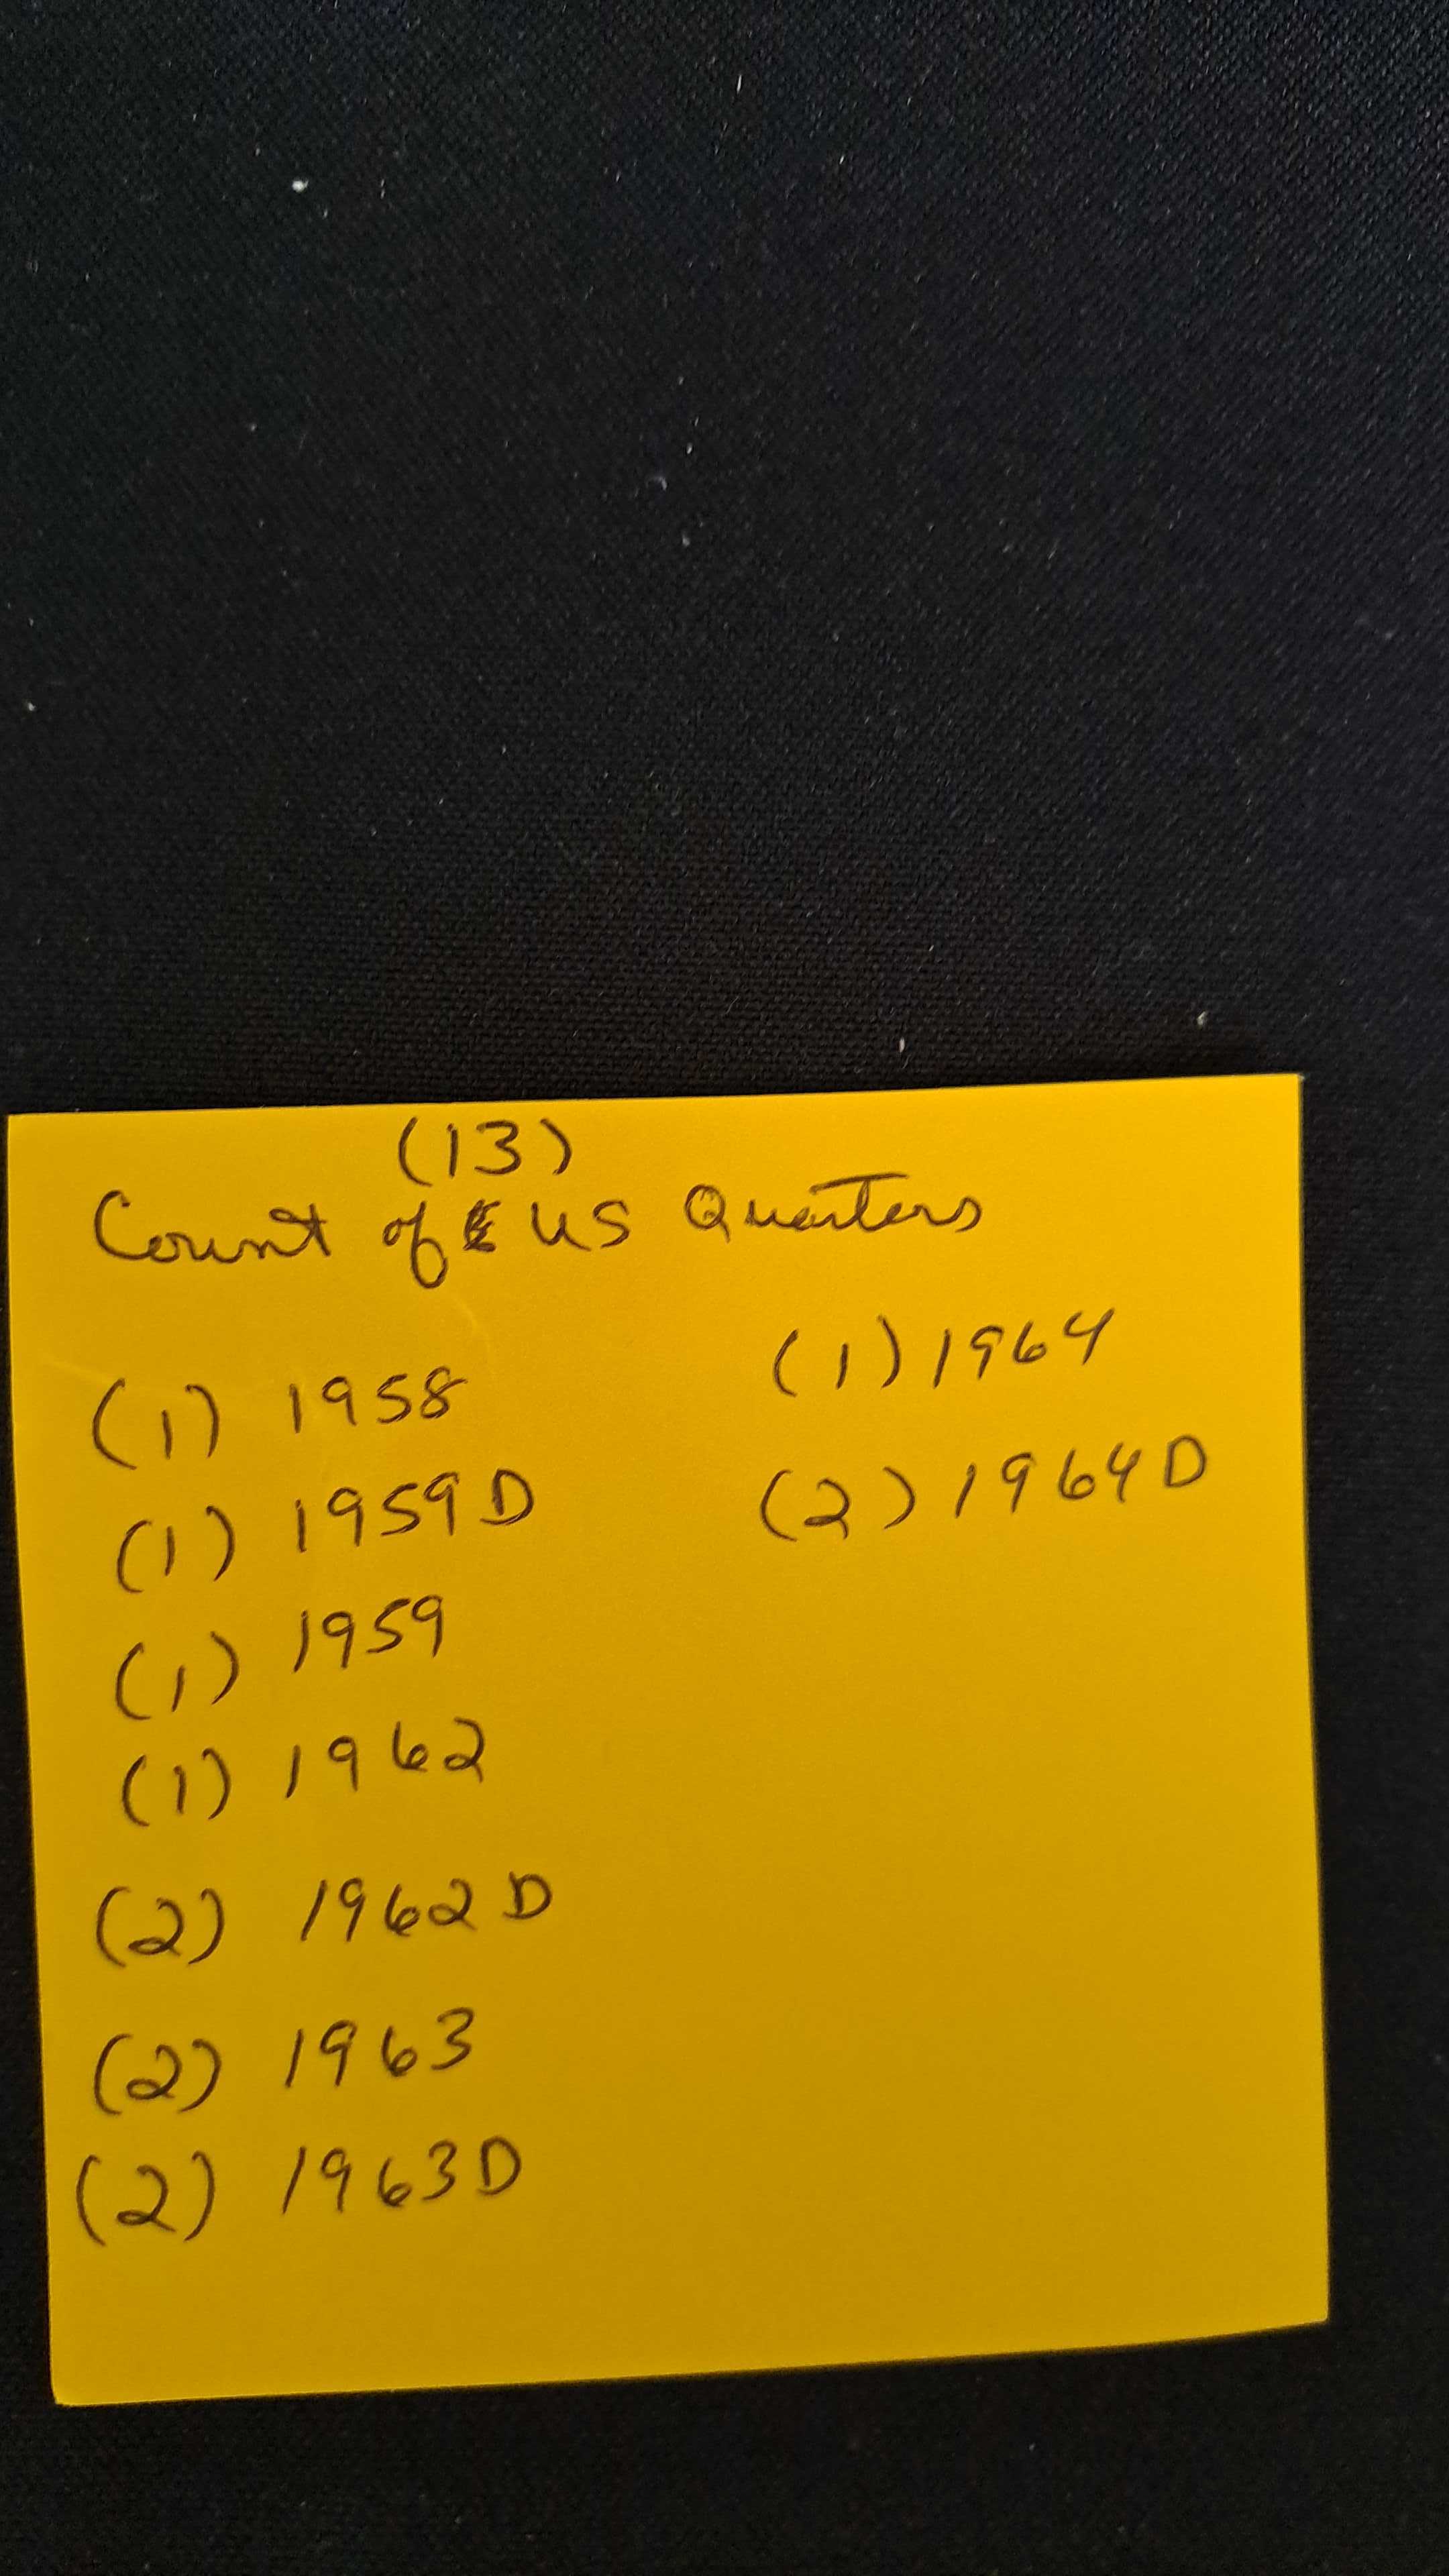 (13)
Count of US Quarters
(1) 1958
(1) 1959 D
(1) 1959
(1) 1962
(2) 1962 D
(2) 1963
(2) 1963 D
(1) 1964
(2) 1964 D